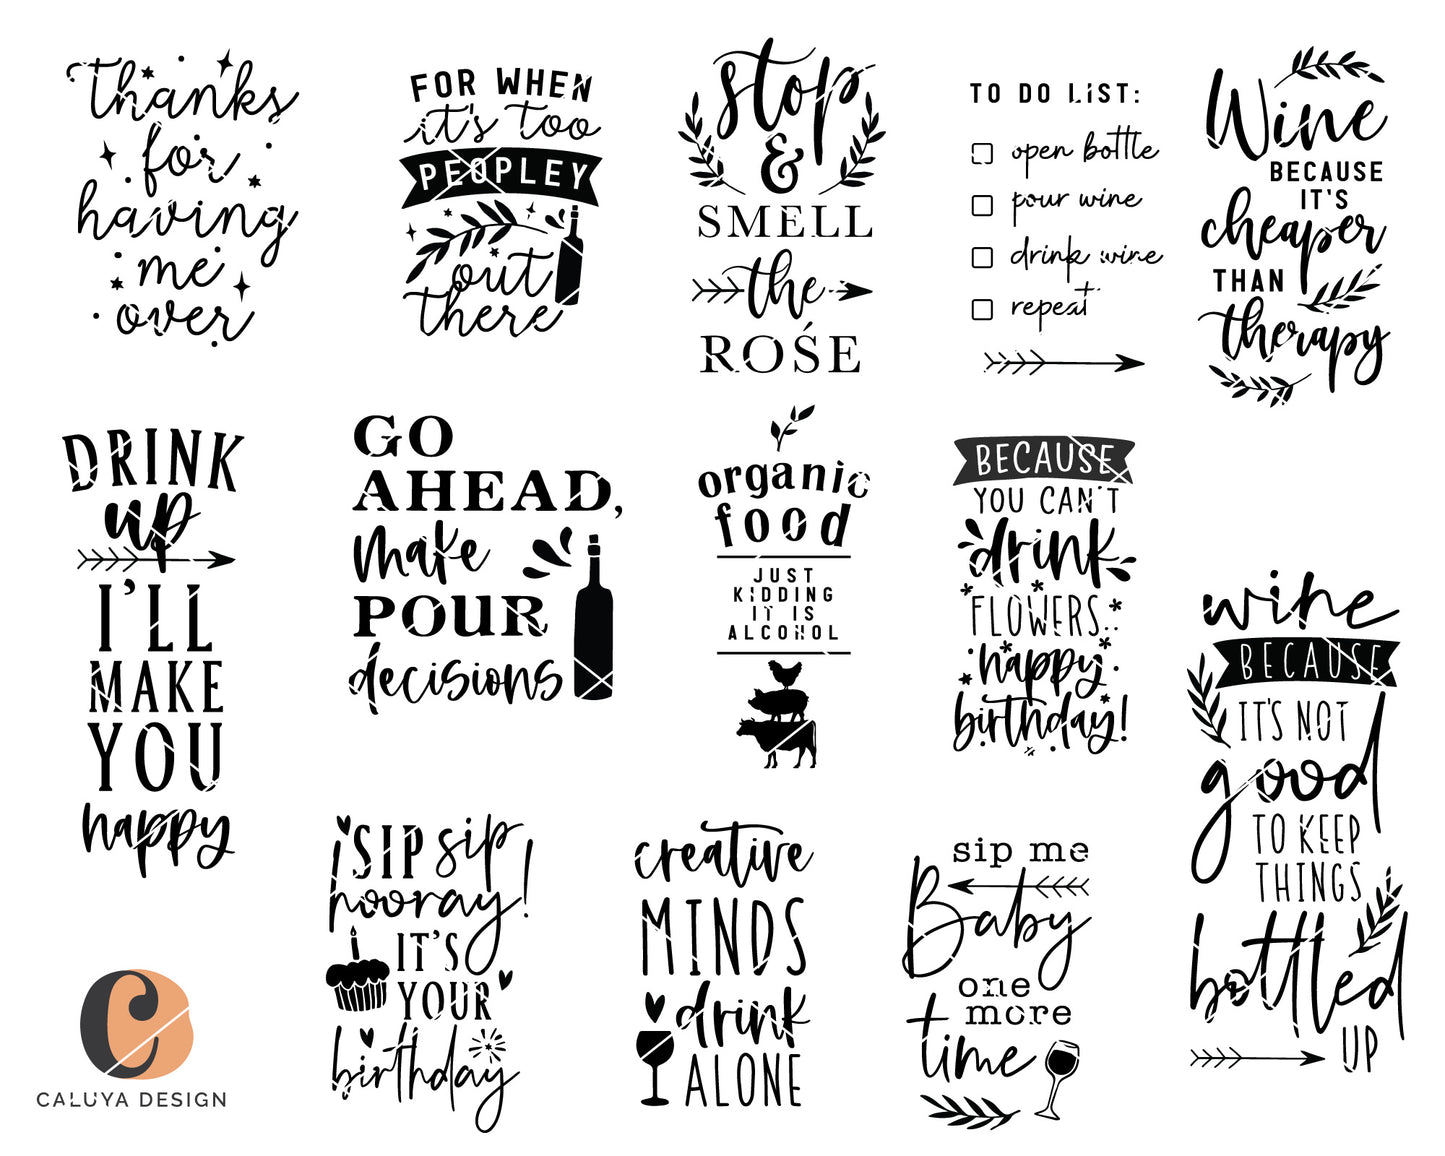 Thanks
for
having
me
over
FOR WHEN
it's too
PEOPLEY
out
there
stop
&
SMELL
the
ROSÉ
TO DO LIST:
open bottle
pour wine
drink wine
repeat
Wine
BECAUSE
IT'S
cheaper
THAN
therapy
DRINK
up
I'LL
MAKE
YOU
happy
GO
AHEAD,
make
POUR
decisions
organic
food
JUST
KIDDING
IT IS
ALCOHOL
BECAUSE
YOU CAN'T
drink
FLOWERS..
happy
birthday!
wine
BECAUSE
IT'S NOT
good
TO KEEP
THINGS
bottled
UP
SIP sip
hooray!
IT'S
YOUR
birthday
creative
MINDS
drink
ALONE
sip me
Baby
one
more
time
C
CALUYA DESIGN